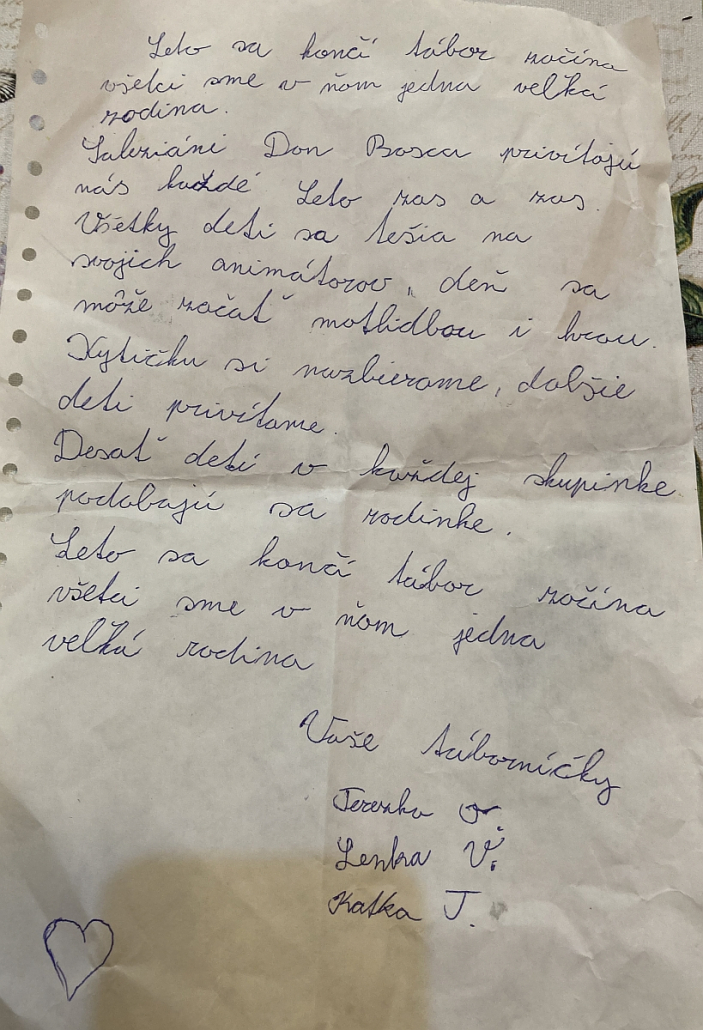 Leto sa končí tábor začína
všetci sme v ňom jedna veľká
rodina.
Saleziáni Don Bosca privítajú
nás každé Leto zas a zas.
Všetky deti sa tešia na
svojich animátorov, deň sa
môže začať motlidbou i hrou.
Kytičku si nazbierame, ďalšie
deti privítame.
Desať detí v každej skupinke
podobajú sa rodinke.
Leto sa končí tábor začína
všetci sme v ňom jedna
veľká rodina
Vaše táborníčky
Terezka
Lenka V.
Katka J.